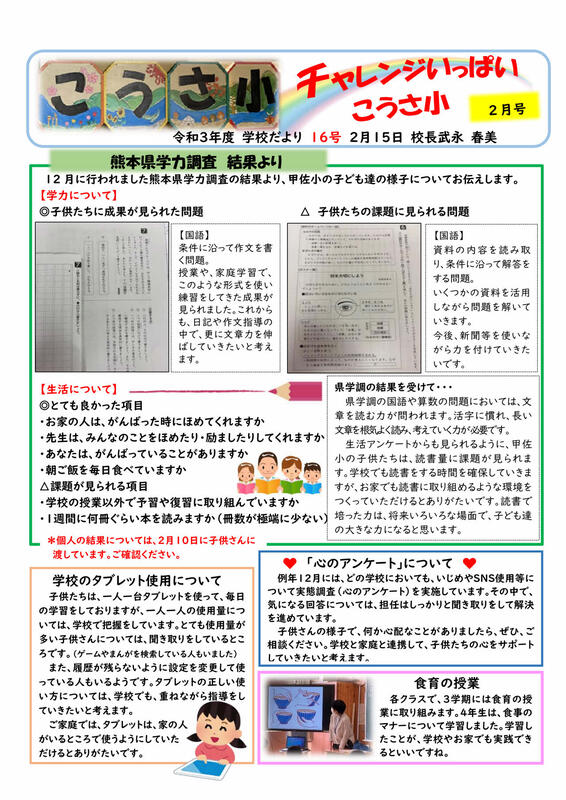 こうさ小
チャレンジいっぱい
こうさ小
2月号
令和3年度 学校だより 16号 2月15日 校長武永 春美
熊本県学力調査 結果より
12月に行われました熊本県学力調査の結果より、甲佐小の子ども達の様子についてお伝えします。
【学力について】
◎子供たちに成果が見られた問題
【国語】
条件に沿って作文を書
く問題。
授業や、家庭学習で、
このような形式を使い
練習をしてきた成果が
見られました。これから
も、日記や作文指導の
中で、更に文章力を伸
ばしていきたいと考え
ます。
△ 子供たちの課題に見られる問題
【国語】
資料の内容を読み取
り、条件に沿って解答を
する問題。
いくつかの資料を活用
しながら問題を解いて
いきます。
今後、新聞等を使いな
がら力を付けていきた
いです。
【生活について】
◎とても良かった項目
・お家の人は、がんばった時にほめてくれますか
・先生は、みんなのことをほめたり・励ましたりしてくれますか
・あなたは、がんばっていることがありますか
・朝ご飯を毎日食べていますか
△課題が見られる項目
・学校の授業以外で予習や復習に取り組んでいますか
・1週間に何冊ぐらい本を読みますか(冊数が極端に少ない)
*個人の結果については、2月10日に子供さんに
渡しています。ご確認ください。
県学調の結果を受けて・・・
県学調の国語や算数の問題においては、文
章を読む力が問われます。活字に慣れ、長い
文章を根気よく読み、考えていく力が必要です。
生活アンケートからも見られるように、甲佐
小の子供たちは、読書量に課題が見られま
す。学校でも読書をする時間を確保していきま
すが、お家でも読書に取り組めるような環境を
つくっていただけるとありがたいです。読書で
培った力は、将来いろいろな場面で、子ども達
の大きな力になると思います。
学校のタブレット使用について
子供たちは、一人一台タブレットを使って、毎日
の学習をしておりますが、一人一人の使用量につ
いては、学校で把握をしています。とても使用量が
多い子供さんについては、聞き取りをしているとこ
ろです。(ゲームやまんがを検索している人もいました)
また、履歴が残らないように設定を変更して使
っている人もいるようです。タブレットの正しい使
い方については、学校でも、重ねながら指導をし
ていきたいと考えます。
ご家庭では、タブレットは、家の人
がいるところで使うようにしていた
だけるとありがたいです。
「心のアンケート」について
例年12月には、どの学校においても、いじめやSNS使用等に
ついて実態調査(心のアンケート)を実施しています。その中で、
気になる回答については、担任はしっかりと聞き取りをして解決
を進めています。
子供さんの様子で、何か心配なことがありましたら、ぜひ、ご
相談ください。学校と家庭と連携して、子供たちの心をサポート
していきたいと考えます。
食育の授業
各クラスで、3学期には食育の授
業に取り組みます。4年生は、食事の
マナーについて学習しました。学習し
たことが、学校やお家でも実践でき
るといいですね。